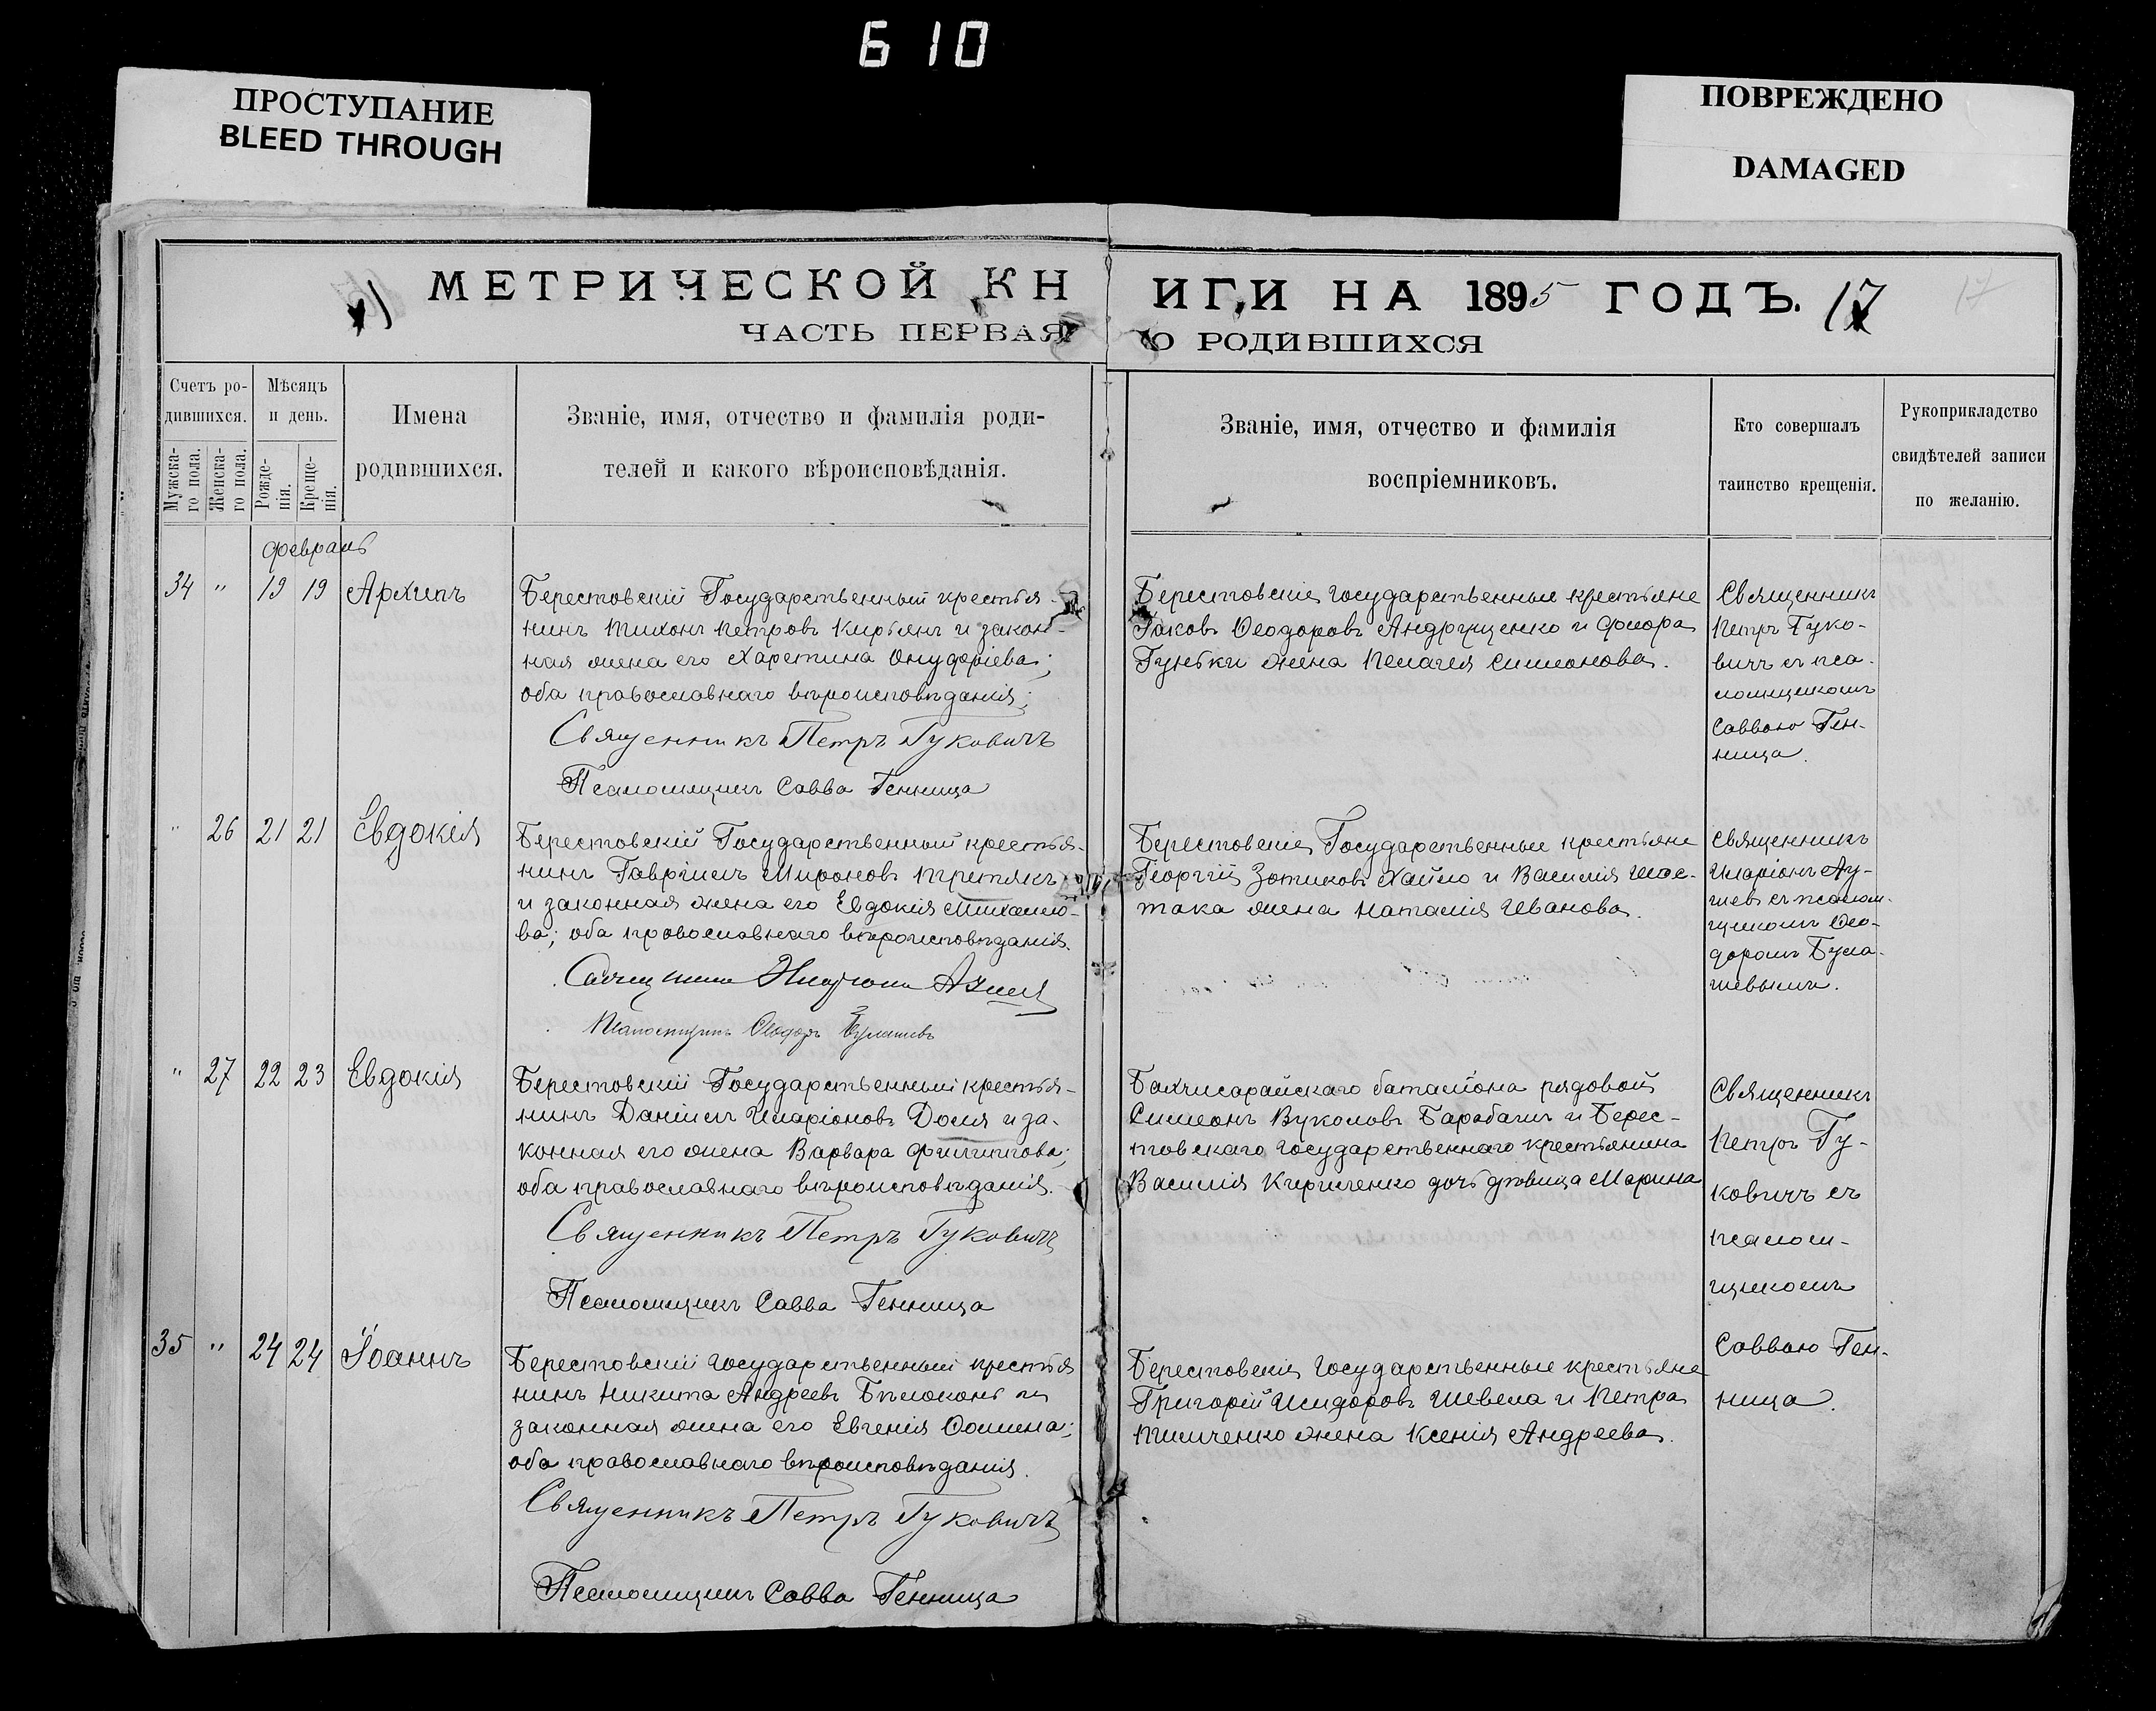 610
ПРОСТУПАНИЕ
BLEED THROUGH
ПОВРЕЖДЕНО
DAMAGED
МЕТРИЧЕСКОЙ КНИГИ НА 1895 ГОДЪ. 17
17
ЧАСТЬ ПЕРВАЯ О РОДИВШИХСЯ
Счетъ ро-
дившихся.
Мужска-
го пола.
Женска-
го пола.
Мѣсяцъ
и день.
Рожде-
нія.
Креще-
нія.
Имена
родившихся.
Званіе, имя, отчество и фамилія роди-
телей и какого вѣроисповѣданія.
Званіе, имя, отчество и фамилія
воспріемниковъ.
Кто совершалъ
таинство крещенія.
Рукоприкладство
свидѣтелей записи
по желанію.
февраль
34 " 19 19 Архипъ
Берестовскій Государственный крестья-
нинъ Тихонъ Петровъ Кирьянъ и закон-
ная жена его Харетина Онуфріева;
оба православнаго вѣроисповѣданія;
Священникъ Петръ Гуковичъ
Псаломщикъ Савва Генница
Берестовскіе государственные крестьяне
Іаковъ Ѳеодоровъ Андрущенко и Флора
Гуньки жена Пелагея Симеонова.
Священникъ
Петръ Гуко-
вичъ съ пса-
ломщикомъ
Саввою Ген-
ница.
" 26 21 21 Евдокія
Берестовскій Государственный крестья-
нинъ Гавріилъ Мироновъ Третякъ
и законная жена его Евдокія Михайло-
ва; оба православнаго вѣроисповѣданія.
Псаломщикъ Ѳеодоръ Булашевъ
Берестовскіе Государственные крестьяне
Георгій Зотиковъ Хайло и Василія Шос-
така жена Наталія Иванова.
Священникъ
Иларіонъ
съ псалом-
щикомъ Ѳео-
доромъ Була-
шевымъ.
" 27 22 23 Евдокія
Берестовскій Государственный крестья-
нинъ Даніилъ Иларіоновъ Доля и за-
конная его жена Варвара Филиппова;
оба православнаго вѣроисповѣданія.
Священникъ Петръ Гуковичъ
Псаломщикъ Савва Генница
Бахчисарайскаго баталіона рядовой
Симеонъ Вуколовъ Барабашъ и Берес-
товскаго государственнаго крестьянина
Василія Кириченко дочь дѣвица Марина
Священникъ
Петръ Гу-
ковичъ съ
псалом-
щикомъ
Саввою Ген-
ница.
35 " 24 24 Іоаннъ
Берестовскій государственный крестья
нинъ Никита Андреевъ Бѣлоконь и
законная жена его Евгенія Ѳомина;
оба православнаго вѣроисповѣданія.
Священникъ Петръ Гуковичъ
Псаломщикъ Савва Генница
Берестовскіе государственные крестьяне
Григорій Исидоровъ Шевела и Петра
Тимченко жена Ксенія Андреева.